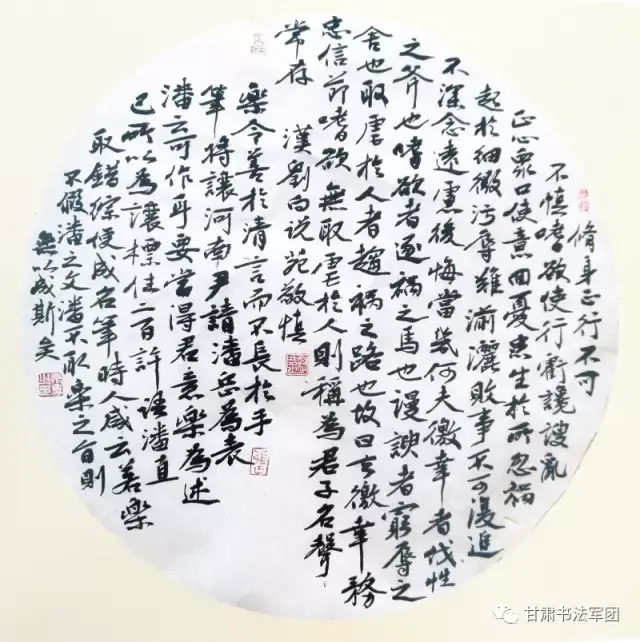 脩身正行不可
不慎嗜欲使行虧讒諛亂
正心眾口使意回憂患生於所忽禍
起於細微污辱難湔灑敗事不可復追
不深念遠慮後悔當幾何夫徼幸者伐性
之斧也嗜欲者逐禍之馬也謾諛者窮辱之
舍也取虐於人者趨禍之路也故曰去徼幸務
忠信節嗜欲無取虐於人則稱為君子名聲
常存 漢劉向說苑敬慎
樂令善於清言而不長於手
筆將讓河南尹請潘岳為表
潘云可作耳要當得君意樂為述
己所以為讓標位二百許語潘直
取錯綜便成名筆時人咸云若樂
不假潘之文潘不取樂之旨則
無以成斯矣
甘肃书法军团